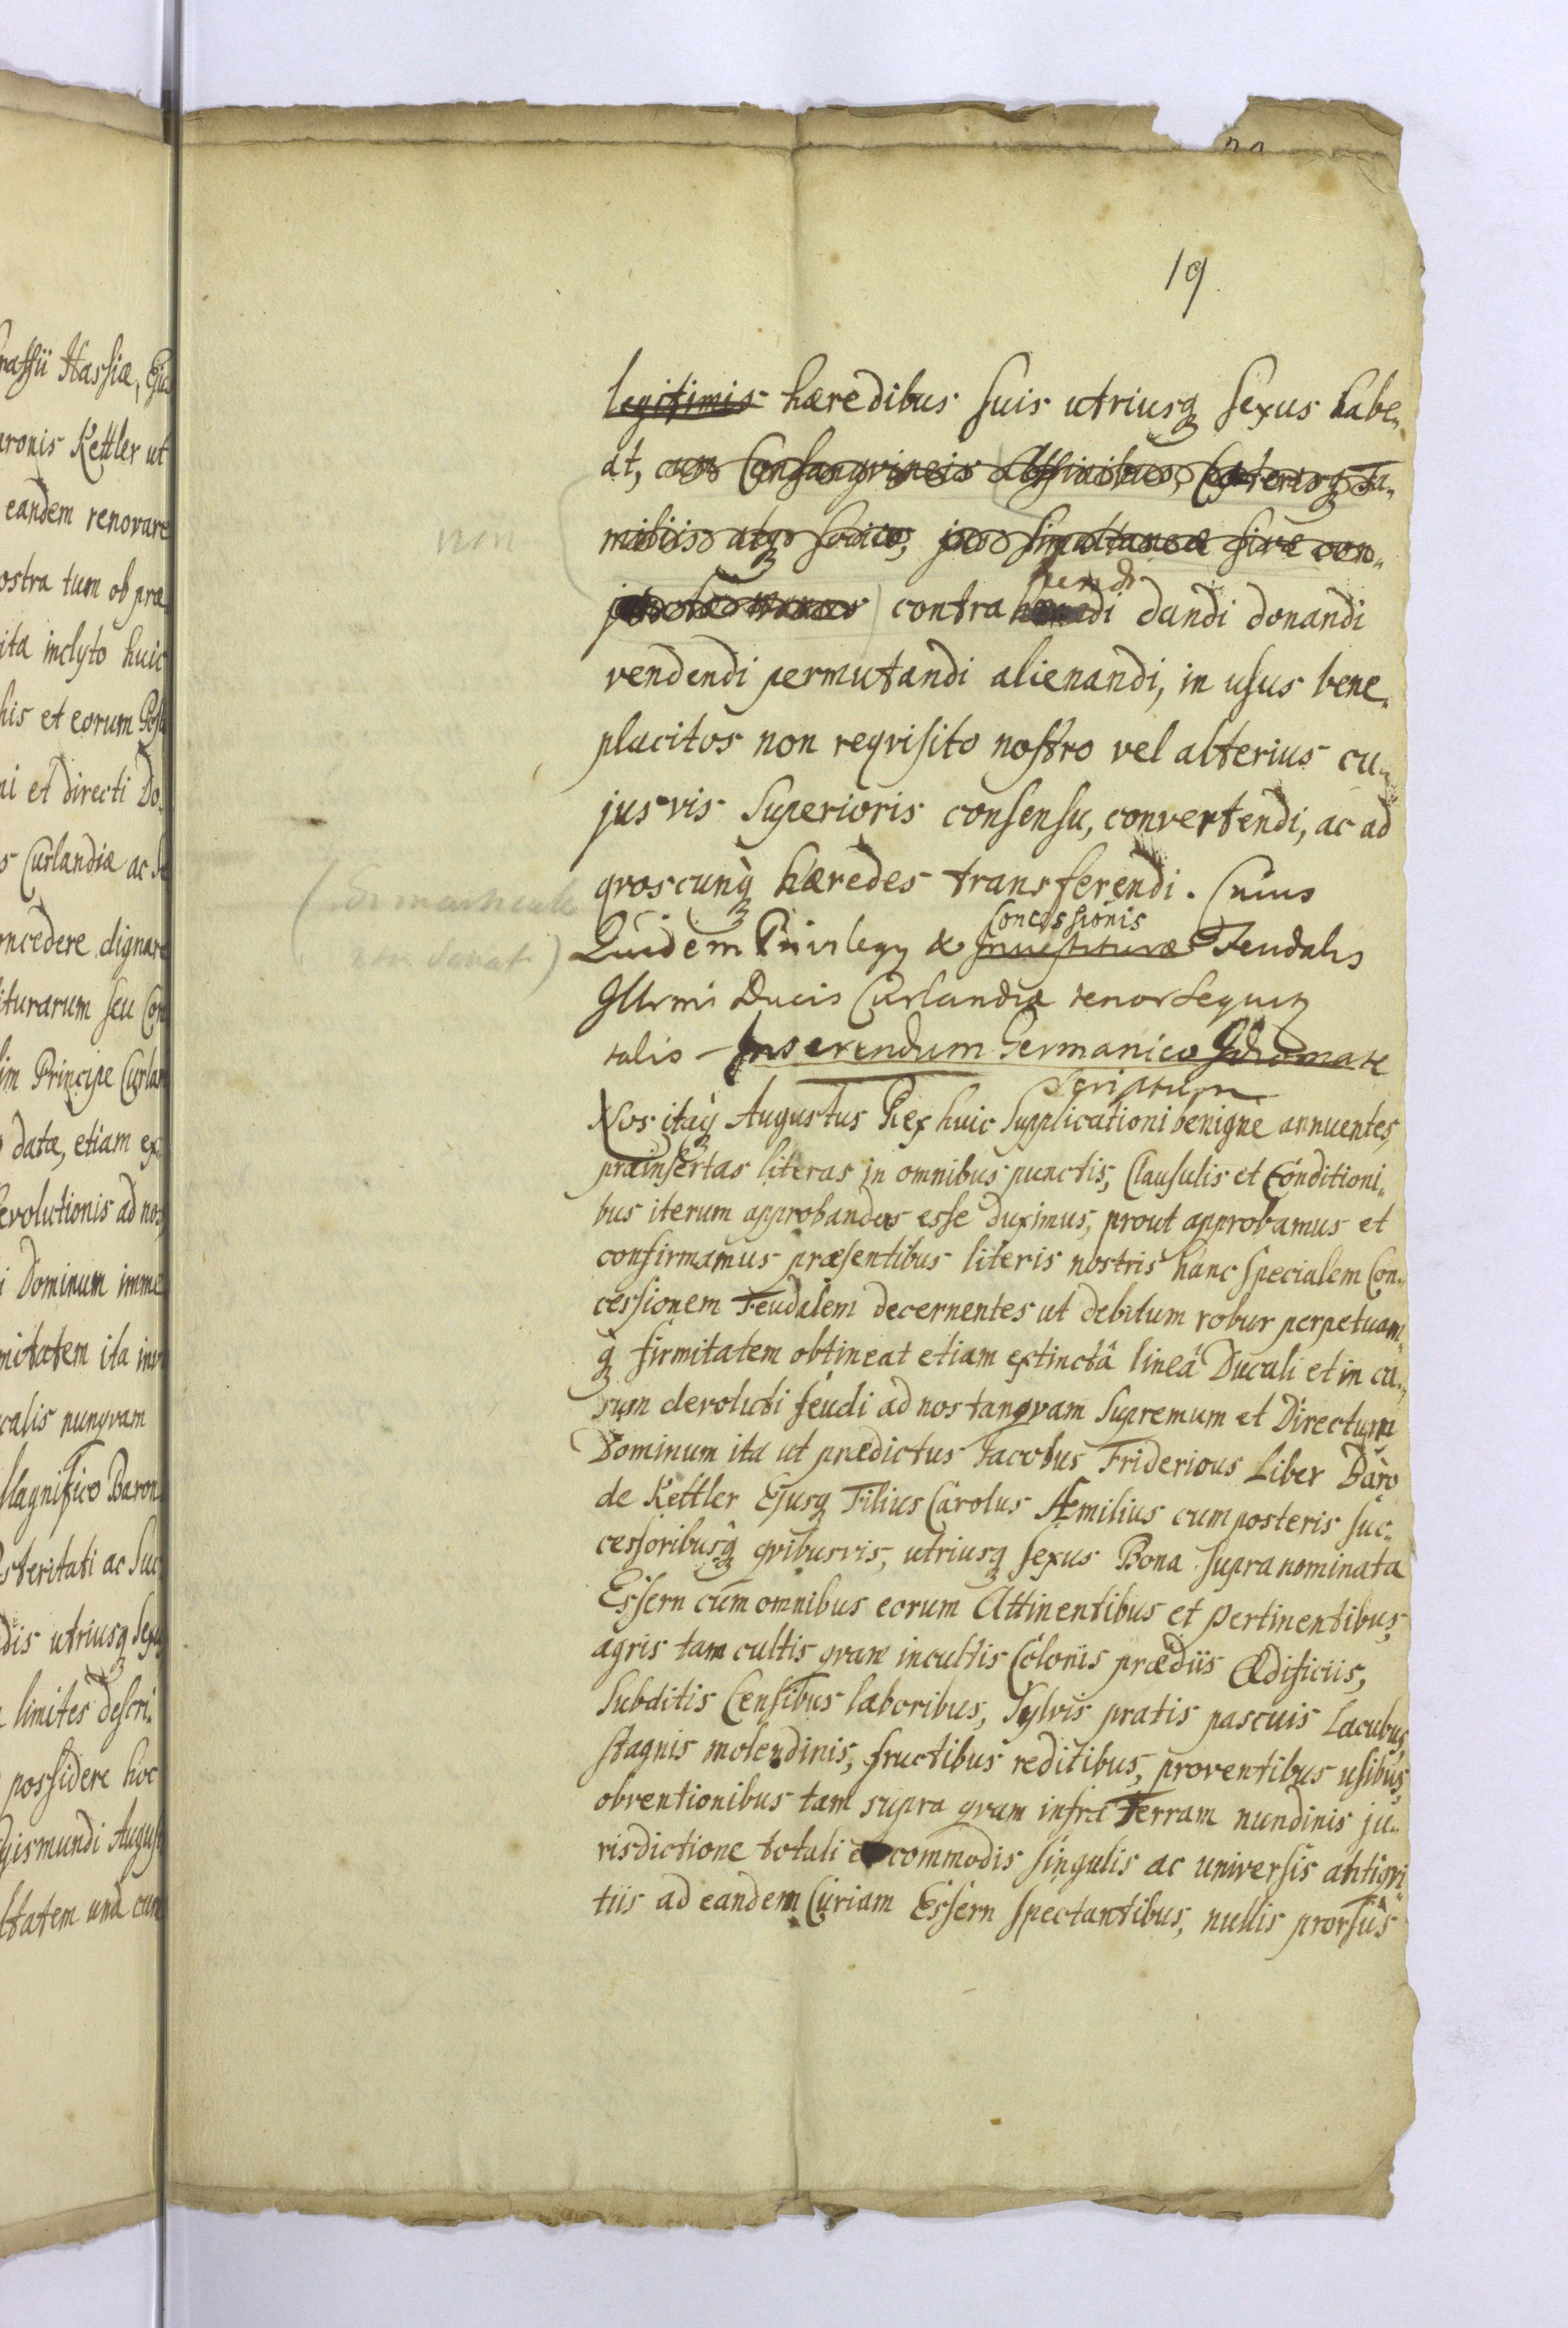 19.
legitimis hæredibus suis utriusq sexus habe„
at, cum Consangvineis Affinibus, Cæterisq Fa„
non
miliis atq simultaneæ sive con„
hendi
contra di dandi donandi
vendendi permutandi alienandi, in usus bene„
placitos non reqvisito nostro vel alterius cu„
jusvis Superioris consensu, convertendi, ac ad
qvoscunq hæredes transferendi. Cuius
Concessionis
Quidem Privilegy & Investituræ Feudalis
Illrmi Ducis Curlandiæ tenor sequitur
talis – Inserendum Germanico Idiomate
Scriptum
Nos itaq Augustus Rex huic Supplicationi benigne annuentes,
præinsertas literas in omnibus punctis, Clausulis et Conditioni„
bus iterum approbandas esse duximus, prout approbamus et
confirmamus præsentibus literis nostris hanc specialem Con„
cessionem Feudalem decernentes ut debitum robur perpetuam„
q firmitatem obtineat etiam extinctâ lineâ Ducali et in ca„
sum devoluti feudi ad nos tanqvam Supremum et Directum
Dominum ita ut prædictus Jacobus Fridericus Liber Baro
de Kettler Ejusq Filius Carolus Æmilius cum posteris suc„
cessoribusq qvibusvis, utriusq sexus Bona supra nominata
Essern cum omnibus eorum Attinentibus et pertinentibus,
agris tam cultis qvam incultis Coloniis prædiis Ædificiis,
Subditis Censibus laboribus, Sylvis pratis pascuis Lacubus,
stagnis molendinis, fructibus reditibus, proventibus usibus,
obventionibus tam supra qvam infra Terram nundinis ju„
risdictione totali commodis singulis ac universis antiqvi„
tus ad eandem Curiam Essern spectantibus, nullis prorsus
rassii Hassiæ, Eju
aronis Kettler ut
eandem renovare
ostra tum ob præ
ita inclyto huic
his et eorum
ni et directi Do„
s Curlandiæ ac Se
oncedere dignare
iturarum seu Con
im Principe Curlan
datæ, etiam ex
evolutionis ad nos
i Dominum imme
mitatem ita
calis nunqvam
Magnifico Baron
steritati ac Suc
dis utriusq Sexu
limites descri„
possidere hoc
gismundi August
ltatem unà cum